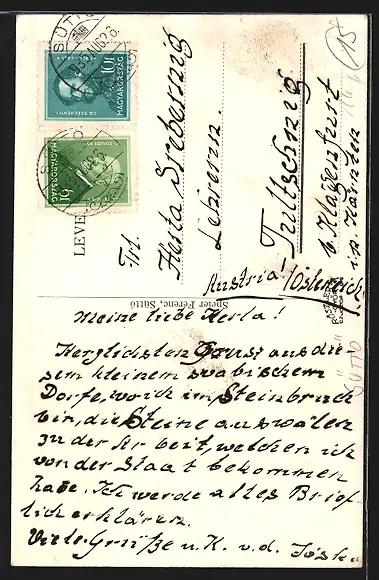 SÜTTŐ
10f
MAGYARORSZÁG
GR. SZÉCHENYI I.
6f
MAGYARORSZÁG
LEVE
Frl.
Herta Srebernig
Lehrerin.
Tultschnig
b Klagenfurt
in Kärnten
Austria! /Österreich/
Speier Ferenc, Süttő
15
SÜTTŐ
Meine liebe Herta!
Herzlichsten Gruss aus die-
sem kleinem svabischem
Dorfe, wo ich im Steinbruch
bin, die Steine auswälen
zu der Arbeit, welchen ich
von der Staat bekommen
habe. Ich werde alles Brief-
lich erklären.
Viele Grüße u. K. v. d. Jóska